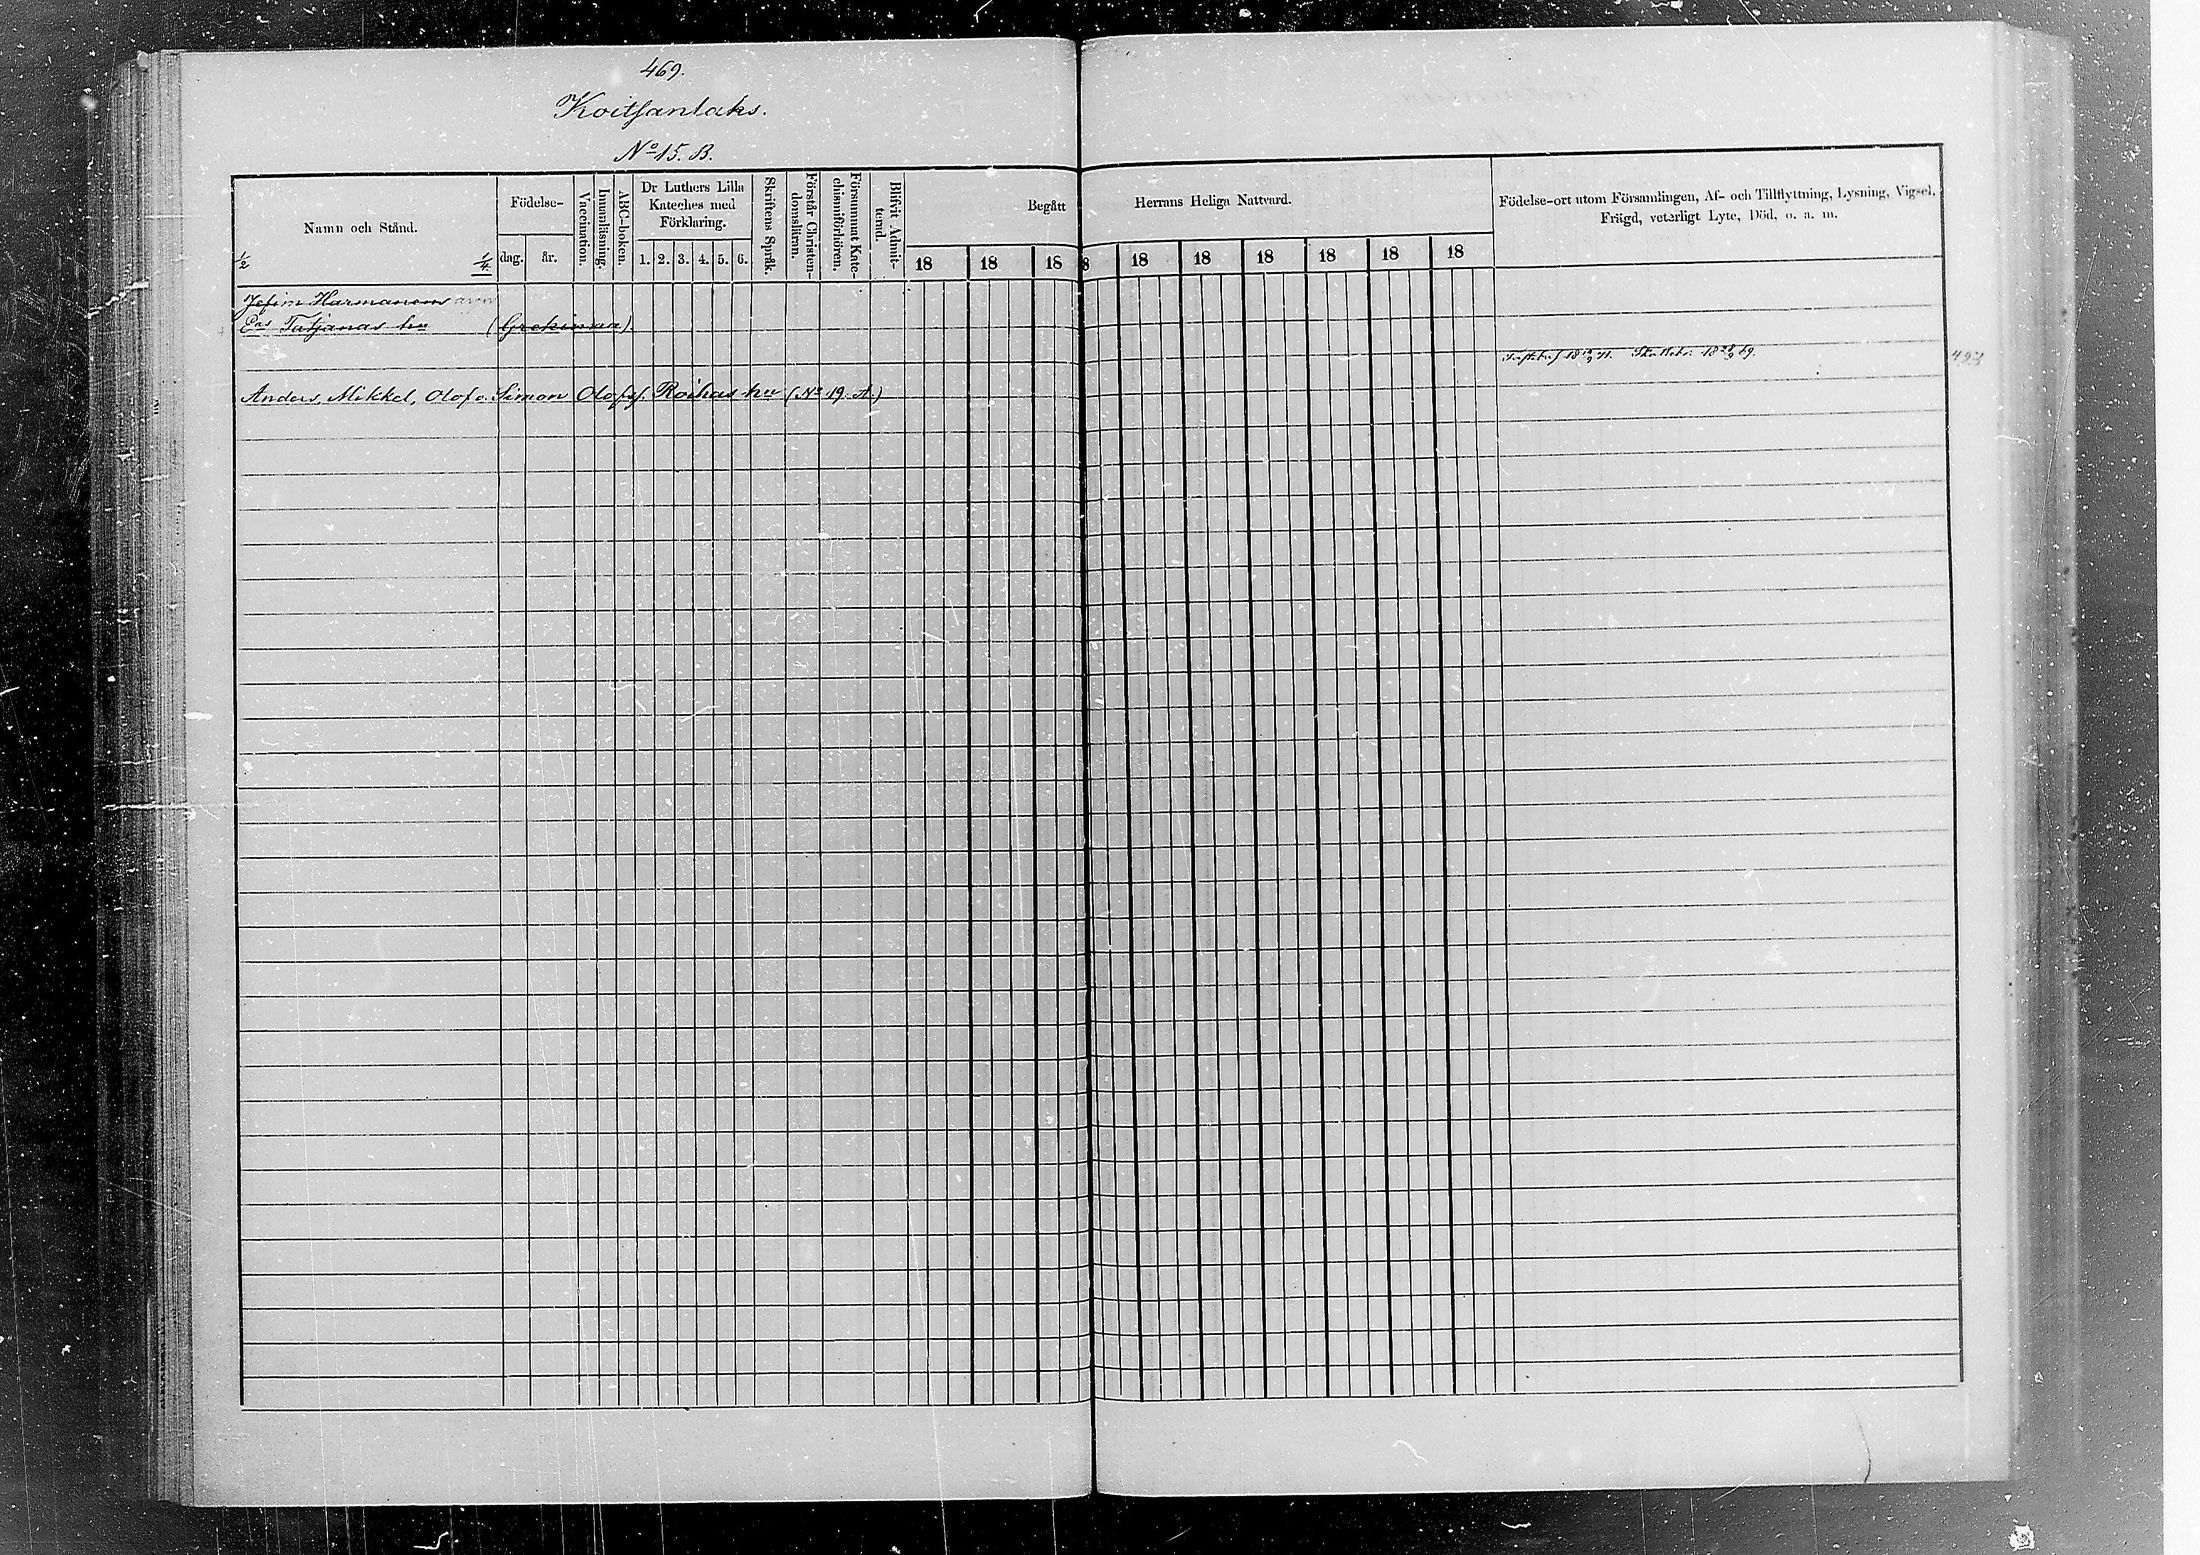 469.
Koitsanlaks.
No 15. B.
Namn och Stånd.
1/2
1/4
Födelse-
dag.
år.
Vaccination.
Innanläsning.
ABC-boken.
Dr Luthers Lilla
Kateches med
Förklaring.
1. 2. 3. 4. 5. 6.
Skriftens Språk.
Förstår Christen-
domsläran.
Försummat Kate-
chismiförhören.
Blifvit Admit-
terad.
Begått
18 18 18
Herrans Heliga Nattvard.
8 18 18 18 18 18 18
Födelse-ort utom Församlingen, Af- och Tillflyttning, Lysning, Vigsel,
Frägd, veterligt Lyte, Död, o. a. m.
Jefim Harmanens
Das Tatjanas hu (Grekinna).
Anders, Mikkel, Olof o. Simon Olofss. Roihas hu (No 19. A.)